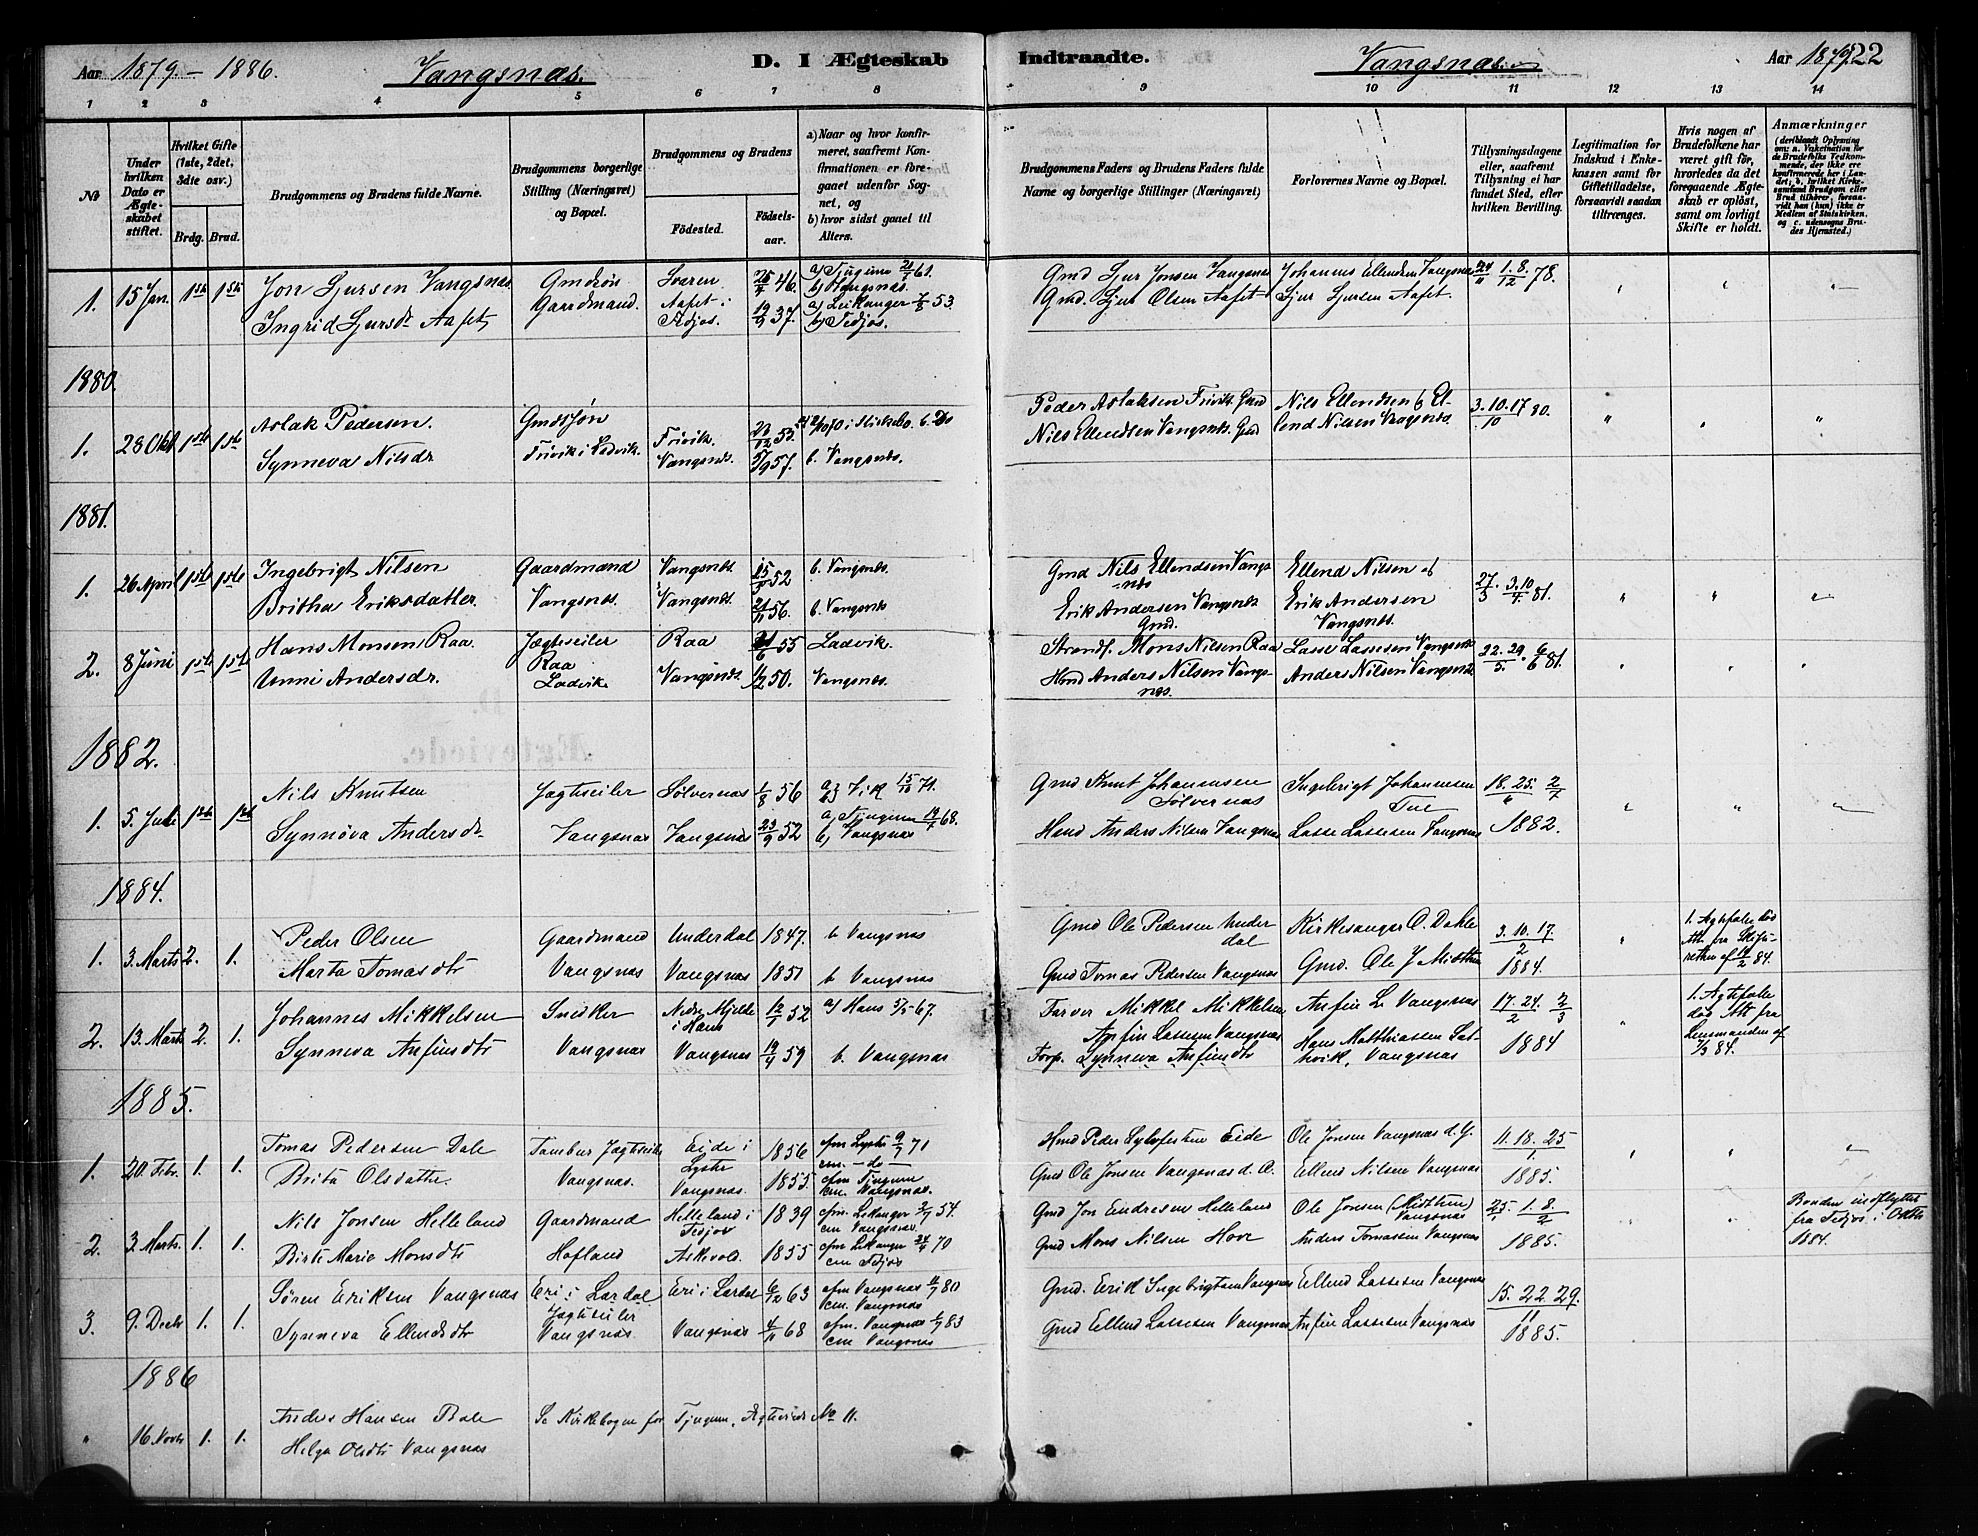 Aar 1879.-1886. Vangsnæs. D. I Ægteskab Indtraadte. Vangsnæs. Aar 1879. 22
1 2 3 4 5 6 7 8 9 10 11 12 13 14
No
Under hvilken Dato er Ægteskabet stiftet.
Hvilket Gifte (1ste, 2det, 3die osv.)
Brdg. Brud.
Brudgommens og Brudens fulde Navne.
Brudgommens borgerlige Stilling (Næringsvei) og Bopæl.
Brudgommens og Brudens
Fødested. Fødselsaar.
a) Naar og hvor konfirmeret, saafremt Konfirmationen er foregaaet udenfor Sognet, og
b) hvor sidst gaaet til Alters.
Brudgommens Faders og Brudens Faders fulde Navne og borgerlige Stillinger (Næringsvei)
Forlovernes Navne og Bopæl.
Tillysningsdagene eller, saafremt Tillysning ei har fundet Sted, efter hvilken Bevilling.
Legitimation for Indskud i Enkekassen samt for Giftetilladelse, forsaavidt saadan tiltrænges.
Hvis nogen af Brudefolkene har været gift før, hvorledes da det foregaaende Ægteskab er opløst, samt om lovligt Skifte er holdt.
Anmærkninger
1. 15 Jan. 1ste 1ste Jon Sjursen Vangsnæs Gmdsøn Svaren 46. a) Tjugum 61. Gmd Sjur Jonsen Vangsnæs Johannes Ellendsen Vangsnæs 24/11 1. 8./12 78. " " "
Gaardmand. b) Vangsnæs.
Ingrid Sjursdr Aafet Aafet i Fedjos. 37. a) Leikanger 53. b) Fedjos. Gmd. Sjur Olsen Aafet Sjur Sjursen Aafet.
1880.
1. 28 Okt 1ste 1ste Aslak Pedersen. Gmdssøn Frivik. 53. Peder Aslaksen Frivik. Gmd Nils Ellendsen & El- 3.10.17/10 80. " " "
Synneva Nilsdr Frivik i Ladvik. Vangsnæs. 5/9 57. b. Vangsnæs. Nils Ellendsen Vangsnæs. Gmd lend Nilsen Vangsnæs.
1881.
1. 26 April 1ste 1ste Ingebrigt Nilsen Gaardmand Vangsnæs. 52 b. Vangsnæs. Gmd Nils Ellendsen Vangsnæs Ellend Nilsen & 27/3. 3.10/4. 81. " " "
Britha Eriksdatter. Vangsnæs. Vangsnæs. 21/11 56. b. Vangsnæs Erik Andersen Vangsnæs Gmd. Erik Andersen Vangsnæs.
2. 8 Juni 1ste 1ste Hans Monsen Raa. Jægteseiler Raa 55 Ladvik. Strands. Mons Nilsen Raa Lasse Lassesen Vangsnæs 22. 29./5. 6/6 81. " " "
Unni Andersdr. Raa Ladvik. Vangsnæs. 1/2 50. Vangsnæs. Hmd Anders Nilsen Vangsnæs. Anders Nilsen Vangsnæs
1882.
1. 5. Juli 1ste 1ste Nils Knutsen Jagtseiler Sølvernæs 1/8 56 Vik 15/10 71. Gmd Knut Johannesen Sølvernæs Ingebrigt Johannesen Tue 18. 25./6 2/7 " " "
Synnøva Andersdr. Vangsnæs Vangsnæs 23/9 52 a) Tjugum 68. b) Vangsnæs Hmd Anders Nilsen Vangsnæs Lasse Lassesen Vangsnæs 1882.
1884.
1. 3. Marts 2. 1. Peder Olsen Gaardmand Underdal 1847. b Vangsnæs Gmd Ole Pedersen Underdal Kirkesanger O. Dahle 3. 10. 17./2 " 1. Ægtefælle død Att. fra Skifteretten af 14/2 84.
Marta Tomasdtr Vangsnæs Vangsnæs 1851 b Vangsnæs Gmd Tomas Pedersen Vangsnæs Gmd. Ole J Midttun 1884.
2. 13. Marts 2. 1. Johannes Mikkelsen Snedker Nedre Mjelde i Haus 52 a) Haus 67. Farver Mikkel Mikkelsen Anfin L. Vangsnæs 17. 24./2 2/3 " 1. Ægtefælle død Att fra Lensmanden af 1/3 84.
Synneva Anfindtr Vangsnæs Vangsnæs 59 b. Vangsnæs Anfin Lassesen Vangsnæs Hans Matthiassen 1884
Synneva Anfindtr Vangsnæs
1885.
1. 20. Febr. 1. 1. Tomas Pedersen Dale Tambur Jagtseiler Eide i Lyster 1856 cfm Lyster 71 cm. - do - Hmd Peder Sylfestsen Eide Ole Jonsen Vangsnæs d. Y. 11. 18. 25/1. " " "
Brita Olsdatter Vangsnæs. Vangsnæs. 1855. cfm Tjugum cm. Vangsnæs. Gmd Ole Jonsen Vangsnæs d. Æ. Ellend Nilsen Vangsnæs 1885.
2. 3. Marts. 1. 1. Nils Jonsen Helleland Gaardmand Helleland i Fedjos 1839 cfm. Leikanger 54. cm Vangsnæs. Gmd Jon Endresen Helleland Ole Jonsen (Midttun) Vangsnæs 25/1. 1. 8./2 " " Bruden indflyttet fra Fedjos i Oktbr 1884.
Birte Marie Monsdtr Hofland Askevold. 1855 cfm Leikanger 70 cm Fedjos Gmd Mons Nilsen Hove Anders Tomassen Vangsnæs 1885.
3. 9. Decbr 1. 1. Søren Eriksen Vangsnæs Eri i Lærdal Eri i Lærdal 6/12 63 cfm Vangsnæs 80 cm. Vangsnæs Gmd. Erik Ingebrigtsen Vangsnæs Ellend Lassesen Vangsnæs 15. 22. 29./11
Synneva Ellendsdtr Jagtseiler Vangsnæs Vangsnæs 4/11 68 cfm. Vangsnæs 83 cm Vangsnæs Gmd Ellend Lassesen Vangsnæs Anfin Lassesen Vangsnæs 1885.
1886
" 16 Novbr 1. 1. Anders Hansen Bale Se Kirkebogen for Tjugum, Ægteviede No 11.
Helga Olsdtr Vangsnæs